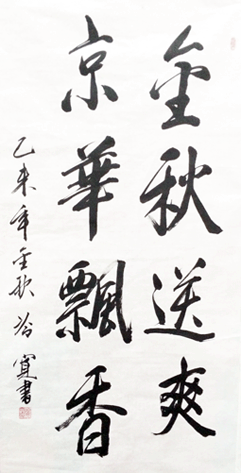 金秋送爽
京華飄香
乙未年金秋 寬書